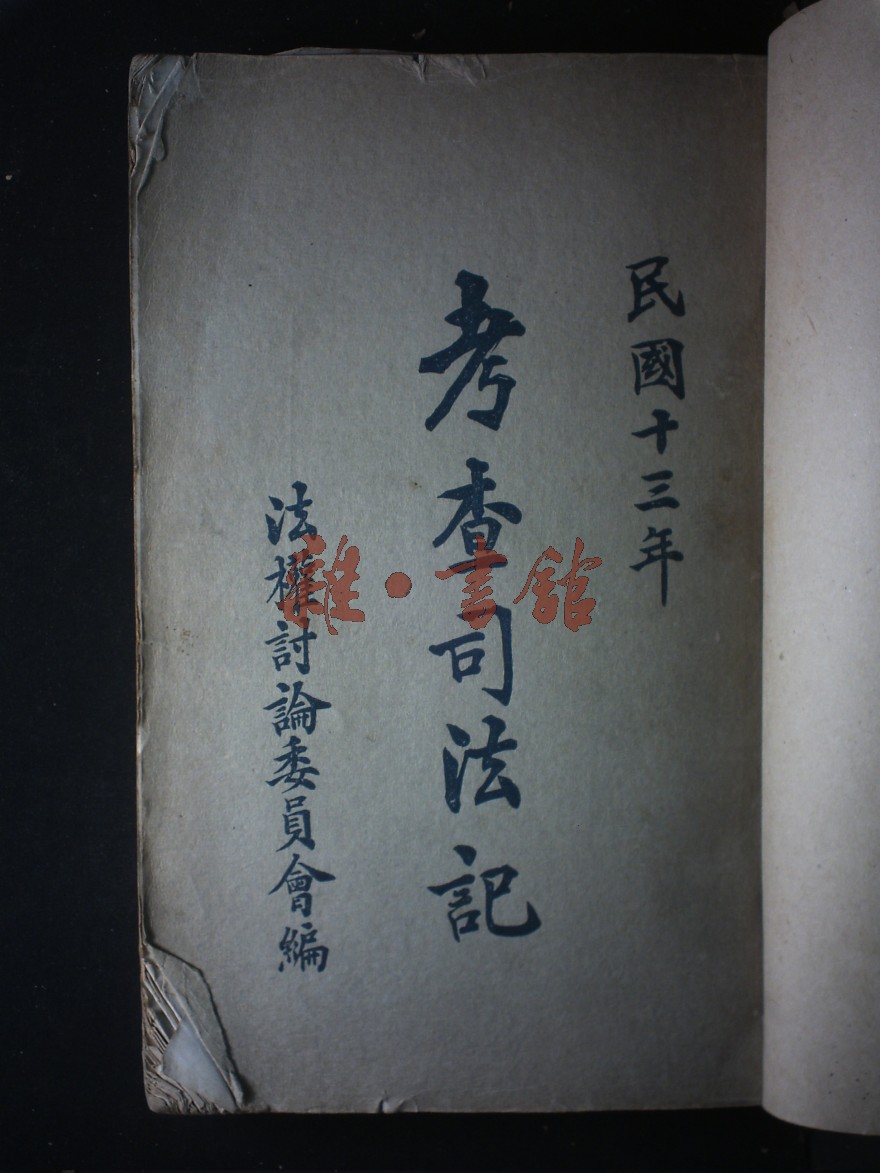 民國十三年
考查司法記
法權討論委員會編
雜·書館